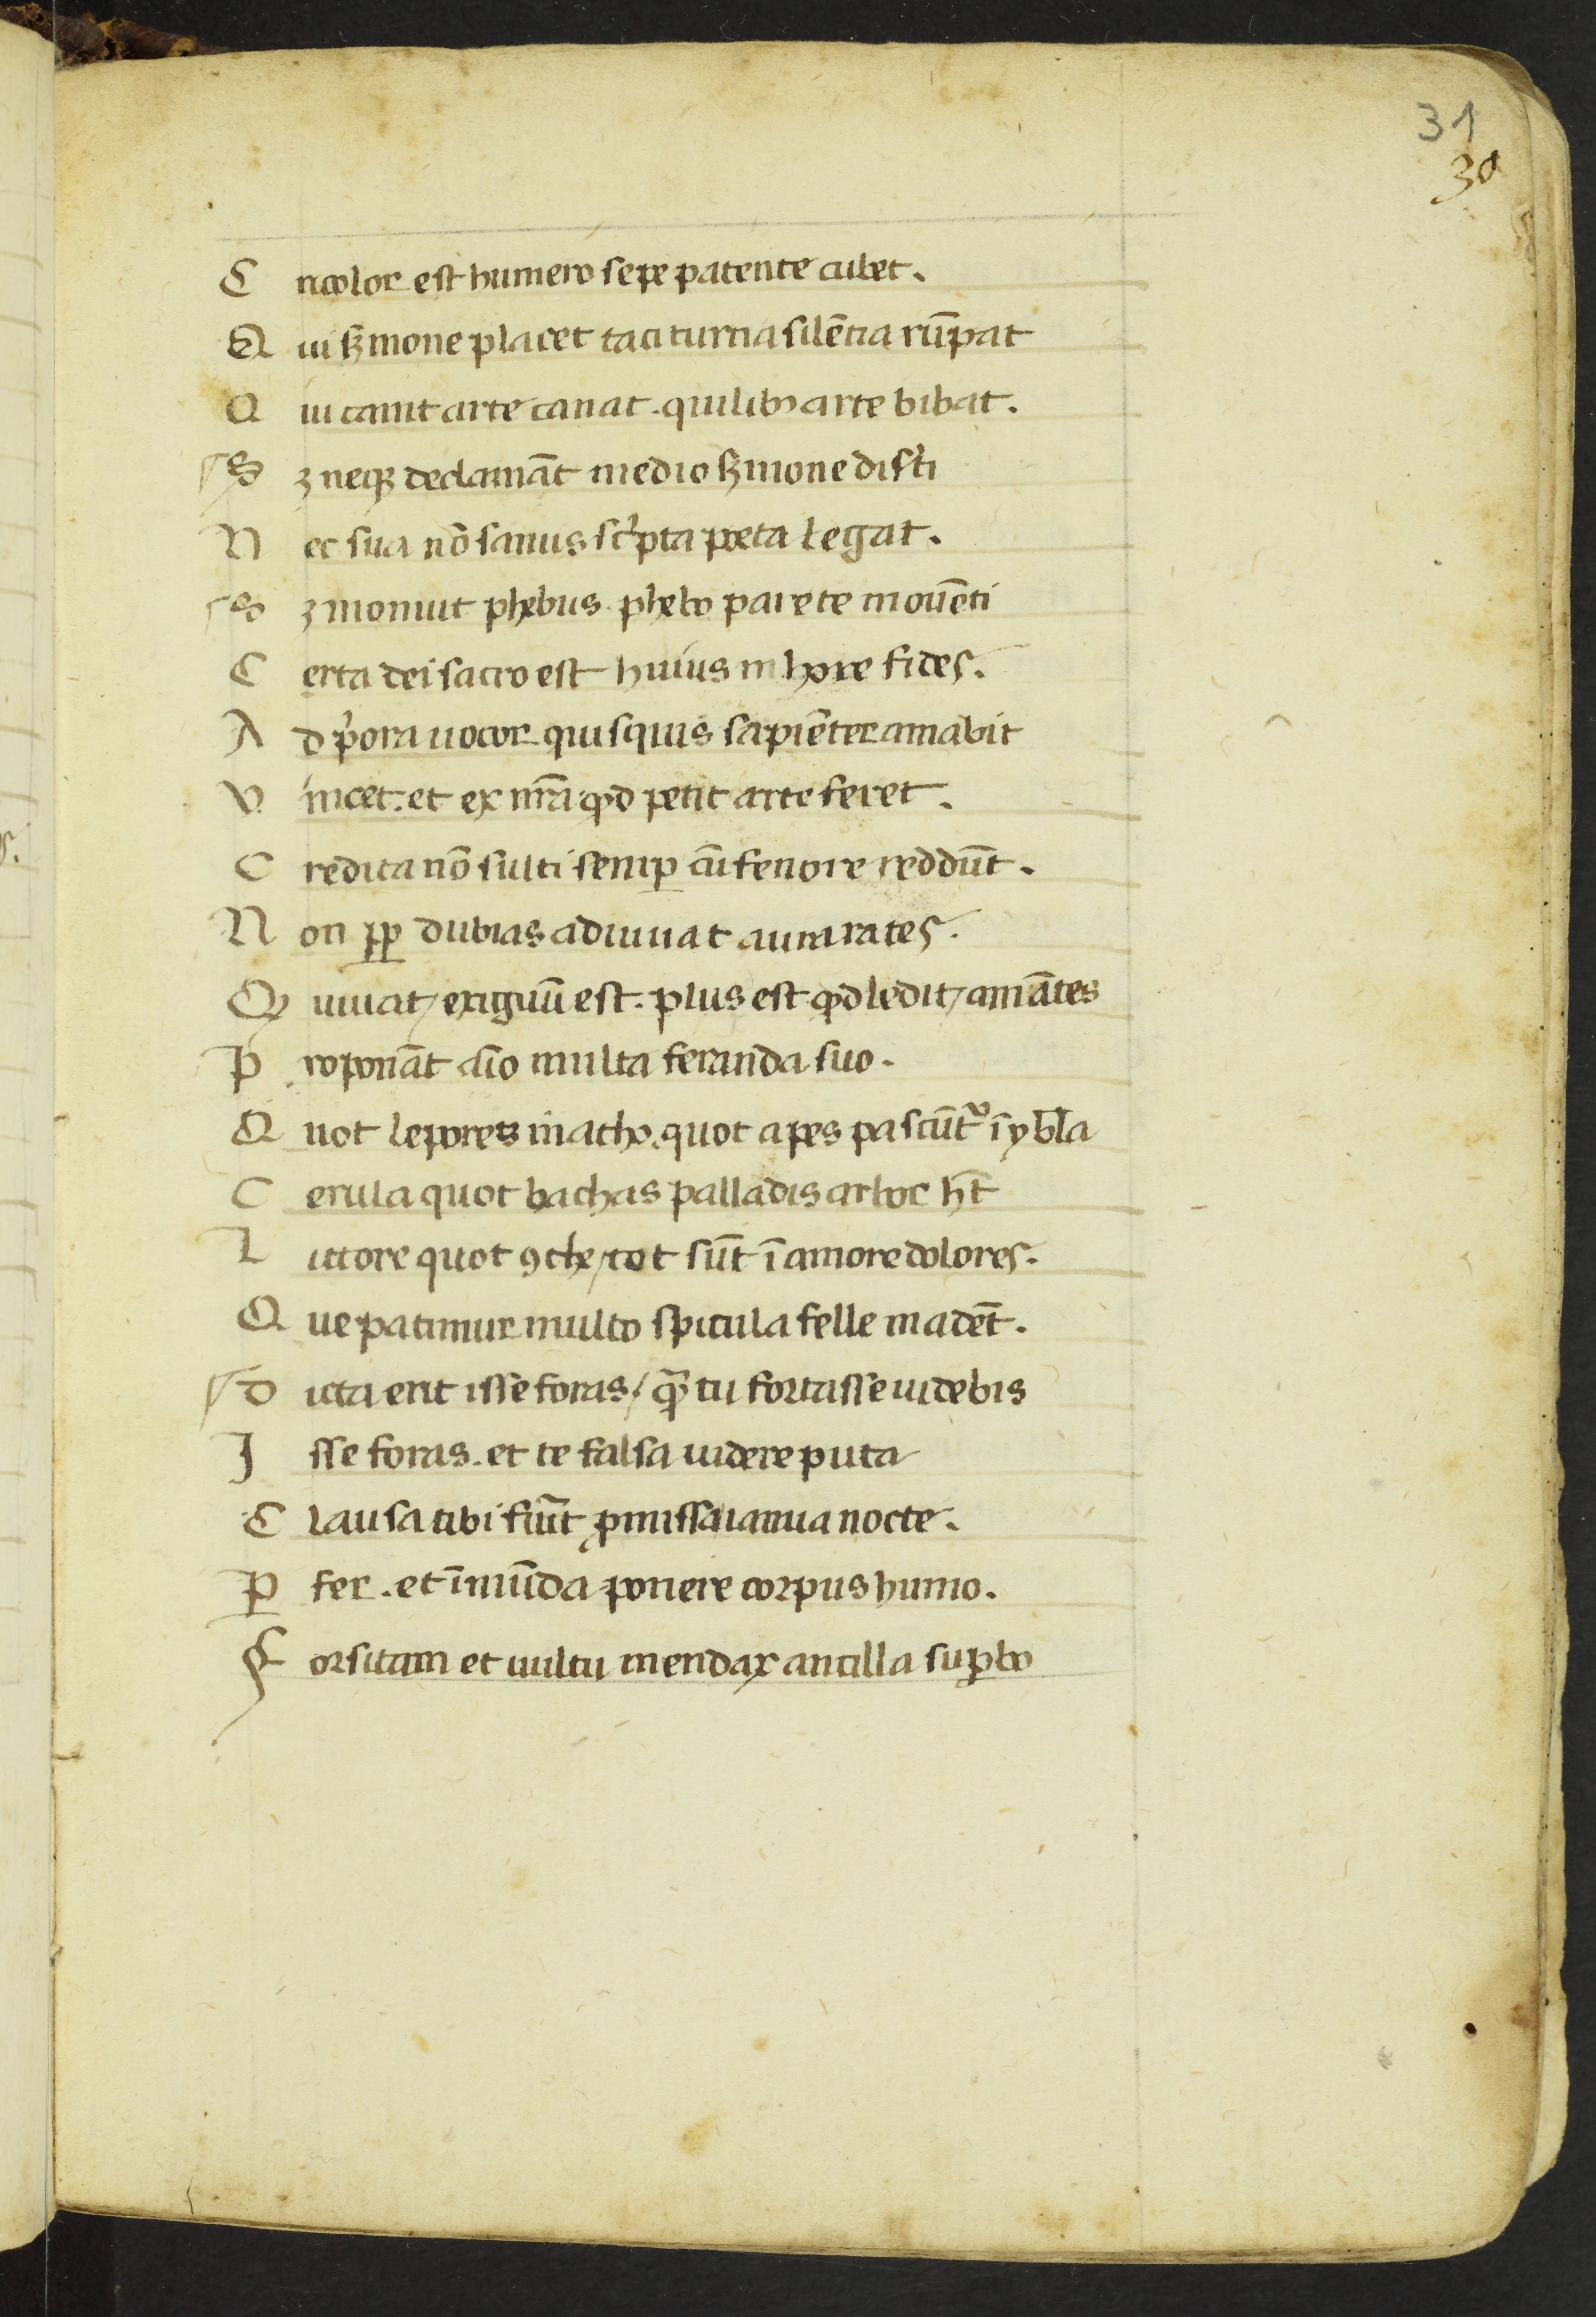 31
30
C ui color est humero sepe patente cubet.
Q ui s̄mone placet taciturna silẽtia rũpat
Q ui canit arte canat. qui bib; arte bibat.
S ꝫ neqꝫ declamãt medio s̄mone disˀti
N ec sua nõ sanus scͥpta poeta legat.
S ꝫ monuit phebus. phebo parete mouẽti
C erta dei sacro est huius in hore fides.
A d pͥora uocor quisquis sapiẽter amabit
V incet. et ex nr̃a qd̉ petit arte feret.
C redita nõ sulti semꝑ cũ fenore reddũt.
N on ꝑꝑ dubias adiuuat aura rates.
Q uiuat / exiguũ est. plus est qd̉ ledit / amãtes
P roponãt aĩo multa feranda suo.
Q uot lepores in atho. quot apes pascũtᷣ ĩ ybla
C erula quot bachas palladis arbor hñt
L ittore quot ꝯche / tot sũt ĩ amore dolores.
Q ue patimur multo spicula felle madẽt.
D icta erit isse foras / quã tu fortasse uidebis
I sse foras. et te falsa uidere puta
C lausa tibi fiũt ꝓmissa ianua nocte.
P̲ fer. et ĩmũda ponere corpus humo.
F orsitam et uultu mendax ancilla suꝑbo